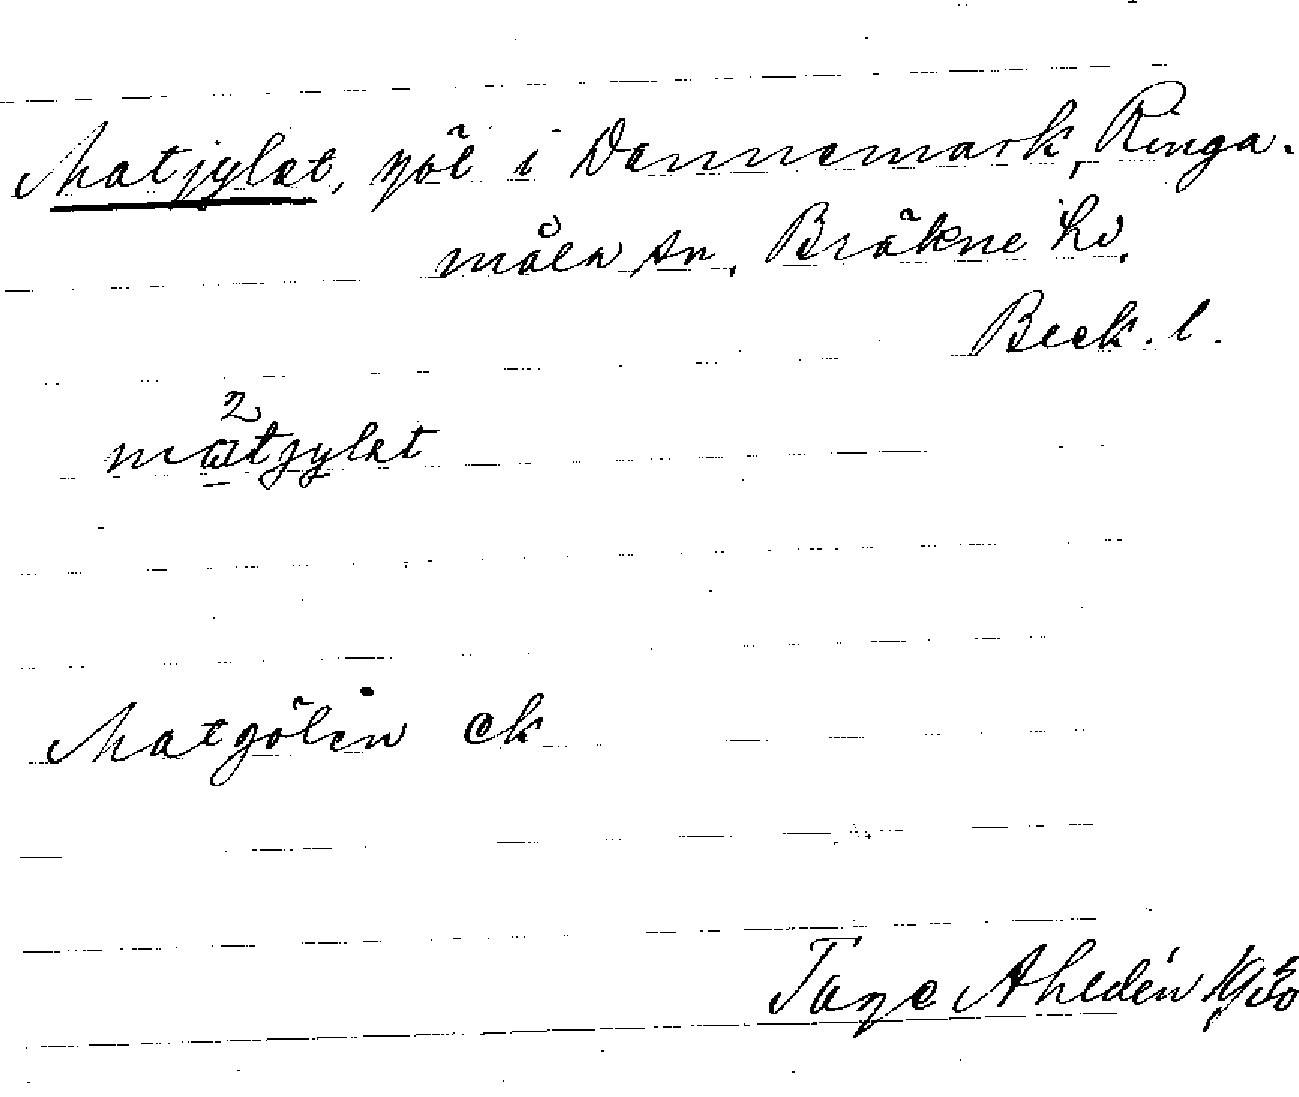 Matjylet, göl i Dannemark, Ringa-
måla sn, Bräkne hd.
Bleck. l.
2
matjylet
Matgölen ek
Tage Ahldén 1930